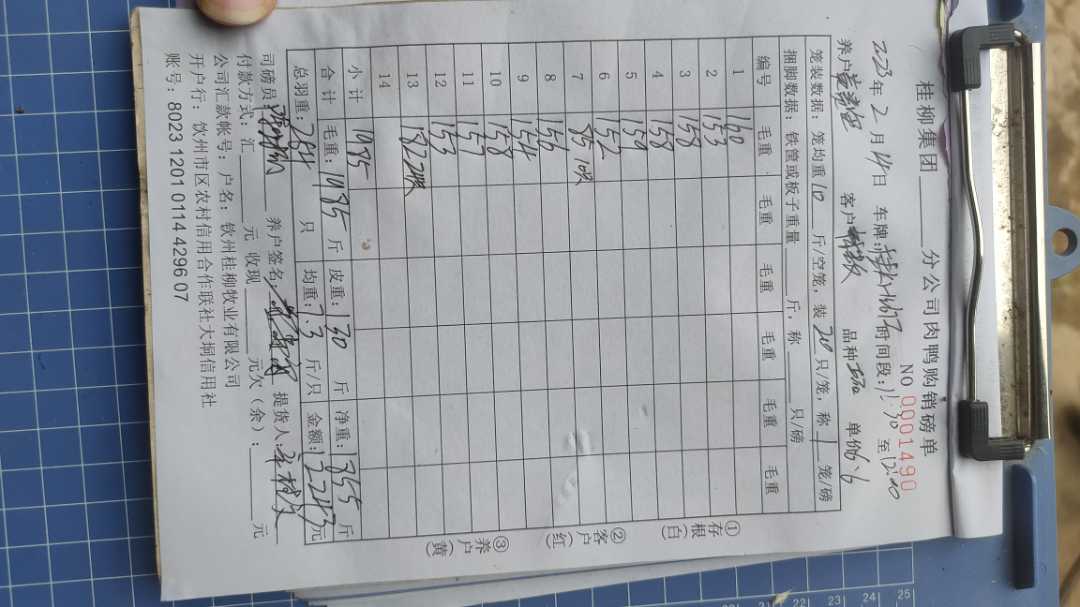 桂柳集团 分公司肉鸭购销磅单
NO 0001490
2023年2月14日 车牌: 时间段:11:30至12:00
养户 客户 品种 单价6.6
笼装数据:笼均重10斤/空笼,装20只/笼,称1笼/磅
捆脚数据:铁筐或板子重量 斤,称 只/磅
编号 毛重 毛重 毛重 毛重 毛重 毛重
1 160
2 153
3 158
4 158
5 159
6 152
7 85 10只
8 156
9 154
10 158
11 157
12 153
13 182 22只
14
小计 1985
合计 毛重:1985斤 皮重:130斤 净重:1855斤
总羽重:254只 均重:7.3斤/只 金额:12243元
司磅员 养户签名 提货人:
付款方式:汇 元 收现 元欠(余): 元
公司汇款帐号:户名:钦州桂柳牧业有限公司
开户行:钦州市区农村信用合作联社大垌信用社
账号:8023 1201 0114 4296 07
①存根(白)
②客户(红)
③养户(黄)
21 22 23 24 25